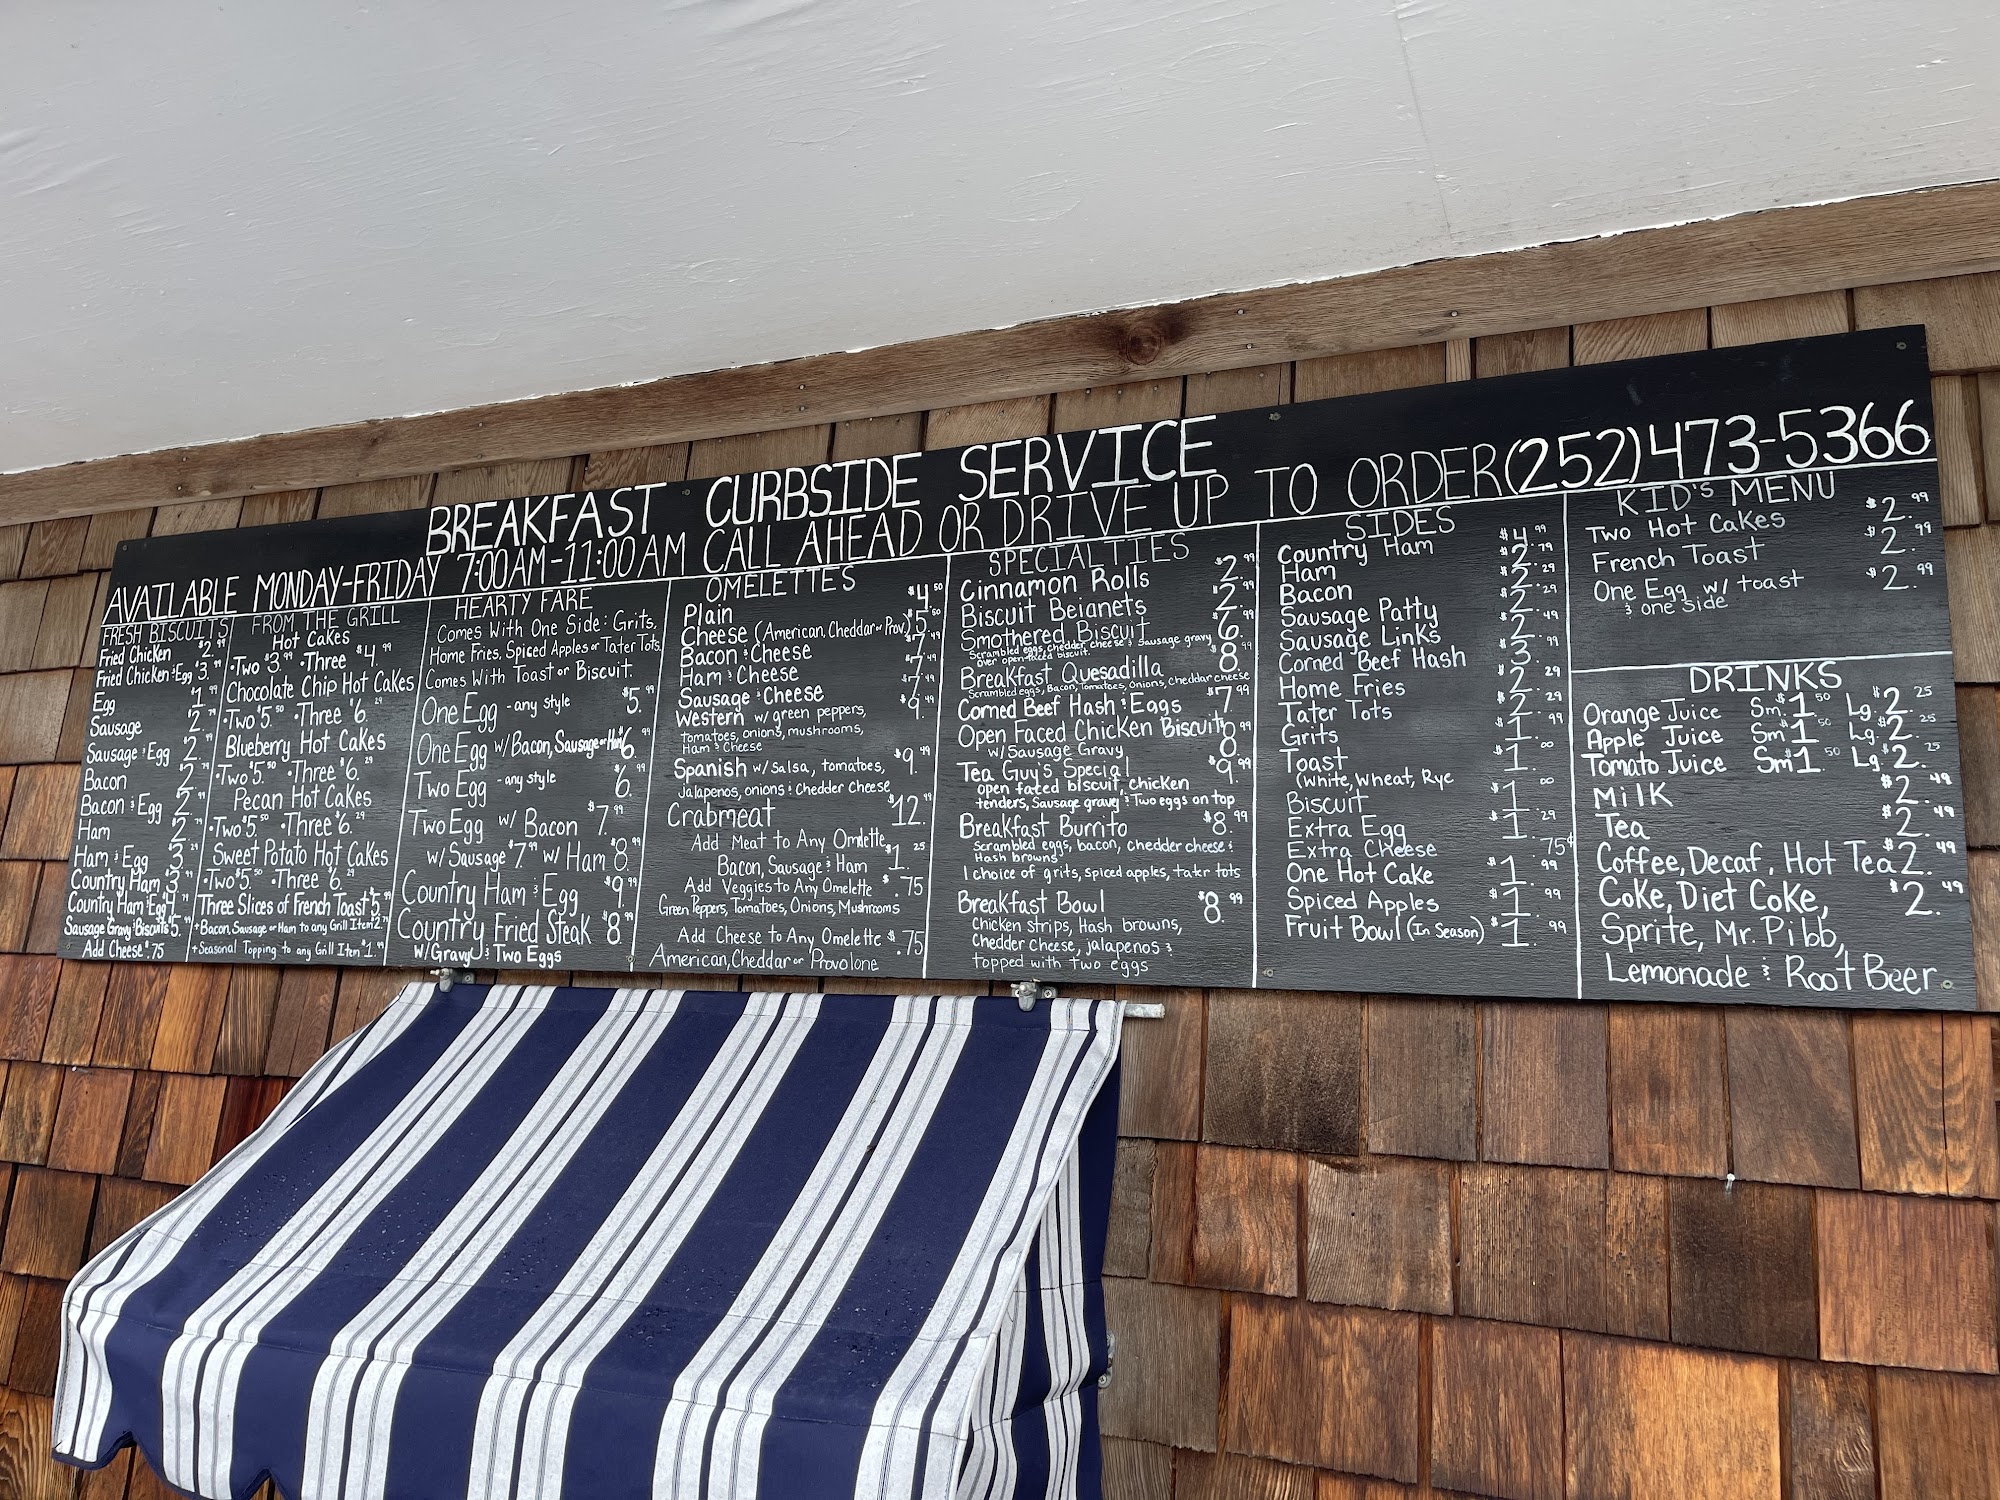 BREAKFAST CURBSIDE SERVICE
AVAILABLE MONDAY-FRIDAY 7:00AM-11:00AM CALL AHEAD OR DRIVE UP TO ORDER (252)473-5366
FRESH BISCUITS
Fried Chicken $2.99
Fried Chicken & Egg $3.99
Egg $1.
Sausage $2.
Sausage & Egg $2.
Bacon $2.
Bacon & Egg $2.
Ham $2.
Ham & Egg $3.
Country Ham $3.
Country Ham & Egg $4.
Sausage Gravy Biscuits $5.
Add Cheese $.75
FROM THE GRILL
Hot Cakes
•Two $3.99 •Three $4.99
Chocolate Chip Hot Cakes
•Two $5.50 •Three $6.29
Blueberry Hot Cakes
•Two $5.50 •Three $6.29
Pecan Hot Cakes
•Two $5.50 •Three $6.29
Sweet Potato Hot Cakes
•Two $5.50 •Three $6.29
Three Slices of French Toast $5.99
+Bacon, Sausage or Ham to any Grill Item $2.
+Seasonal Topping to any Grill Item $1.99
HEARTY FARE
Comes With One Side: Grits,
Home Fries, Spiced Apples or Tater Tots.
Comes With Toast or Biscuit.
One Egg - any style $5.99
One Egg w/ Bacon, Sausage or Ham $6.99
Two Egg - any style $6.99
Two Egg w/ Bacon $7.99
w/ Sausage $7.99 w/ Ham $8.99
Country Ham & Egg $9.99
Country Fried Steak $8.99
w/ Gravy & Two Eggs
OMELETTES
Plain $4.50
Cheese (American, Cheddar or Prov.) $5.50
Bacon & Cheese $7.49
Ham & Cheese $7.49
Sausage & Cheese $7.49
Western w/ green peppers, $9.49
tomatoes, onions, mushrooms,
Ham & Cheese
Spanish w/ Salsa, tomatoes, $9.99
Jalapenos, onions & Chedder Cheese
Crabmeat $12.99
Add Meat to Any Omelette
Bacon, Sausage & Ham $1.25
Add Veggies to Any Omelette $.75
Green Peppers, Tomatoes, Onions, Mushrooms
Add Cheese to Any Omelette $.75
American, Cheddar or Provolone
SPECIALTIES
Cinnamon Rolls $2.99
Biscuit Beianets $2.99
Smothered Biscuit $6.99
Scrambled eggs, chedder cheese & Sausage gravy
over open faced biscuit.
Breakfast Quesadilla $8.99
Scrambled eggs, Bacon, Tomatoes, Onions, cheddar cheese
Corned Beef Hash & Eggs $7.99
Open Faced Chicken Biscuit $8.99
w/ Sausage Gravy
Tea Guy's Special $9.99
open faced biscuit, chicken
tenders, Sausage gravy & Two eggs on top
Breakfast Burrito $8.99
Scrambled eggs, bacon, chedder cheese &
Hash browns
1 choice of grits, spiced apples, tater tots
Breakfast Bowl $8.99
Chicken strips, Hash browns,
Chedder cheese, jalapenos &
topped with two eggs
SIDES
Country Ham $4.99
Ham $2.79
Bacon $2.29
Sausage Patty $2.29
Sausage Links $2.49
Corned Beef Hash $3.99
Home Fries $2.29
Tater Tots $2.29
Grits $1.99
Toast $1.00
(White, Wheat, Rye
Biscuit $1.00
Extra Egg $1.29
Extra Cheese .75¢
One Hot Cake $1.99
Spiced Apples $1.99
Fruit Bowl (In Season) $1.99
KID'S MENU
Two Hot Cakes $2.99
French Toast $2.99
One Egg w/ toast $2.99
& one side
DRINKS
Orange Juice Sm $1.50 Lg. $2.25
Apple Juice Sm $1.50 Lg. $2.25
Tomato Juice Sm $1.50 Lg. $2.25
Milk $2.49
Tea $2.49
Coffee, Decaf, Hot Tea $2.49
Coke, Diet Coke, $2.49
Sprite, Mr. Pibb,
Lemonade & Root Beer